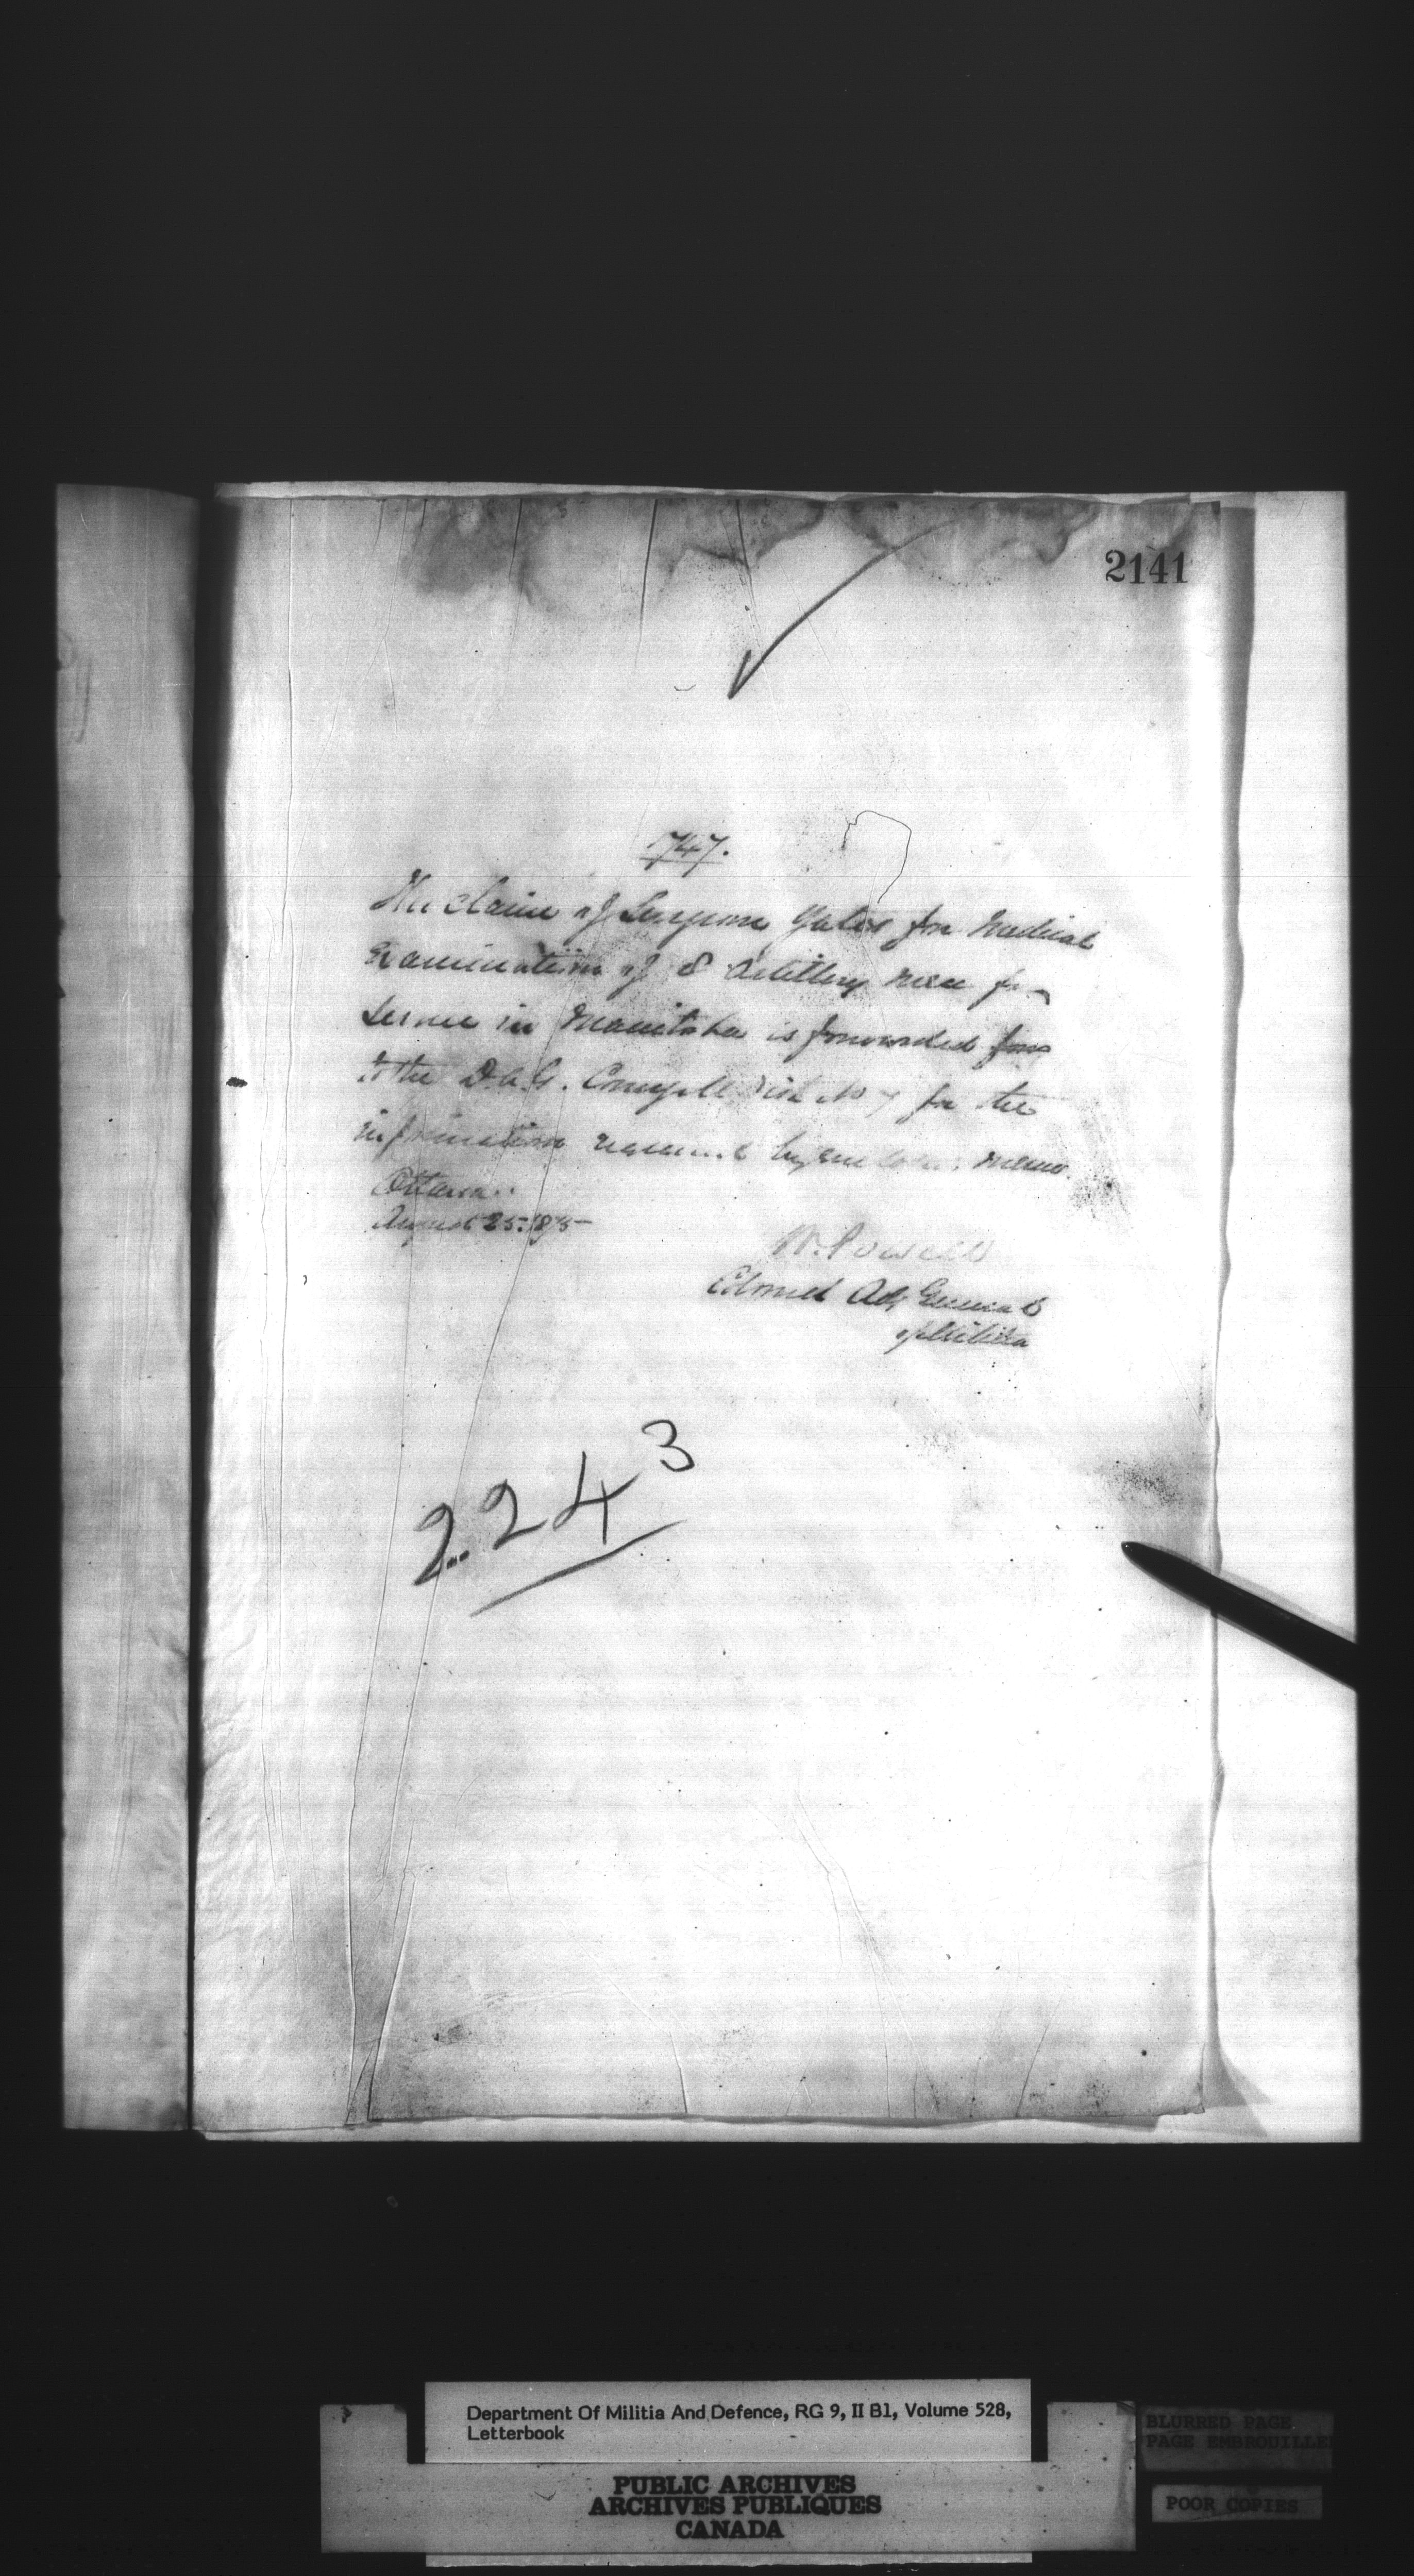 2141
747.
The claim of Surgeon Yates for Medical
Examination of 8 Artillery men for
Service in Manitoba is forwarded
to the D.A.G. Comg Mil. Dist No 7 for the
information required by enclosed memo.
Ottawa.
August 25. 1875
W. Powell
Colonel Adj General
of Militia
2243
Department Of Militia And Defence, RG 9, II B1, Volume 528,
Letterbook
PUBLIC ARCHIVES
ARCHIVES PUBLIQUES
CANADA
BLURRED PAGE
PAGE EMBROUILLE
POOR COPIES